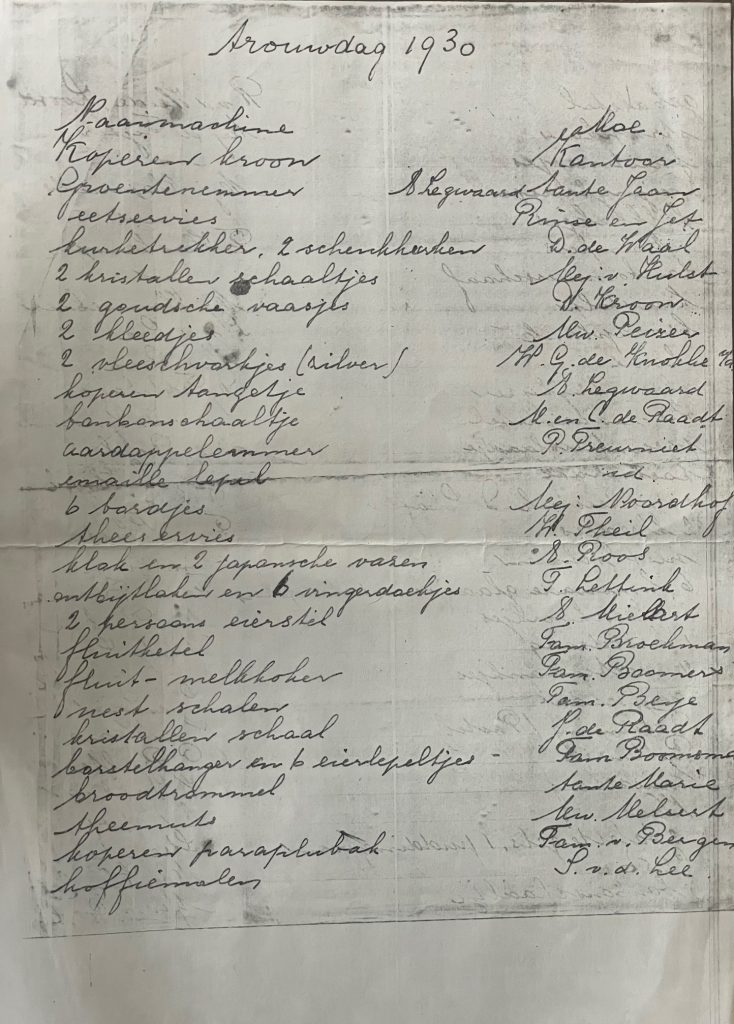 Trouwdag 1930
Naaimachine Moe.
Koperen kroon Kantoor
Groentenemmer A Legwaard tante Jaan
eetservies Rinse en Jet
kurketrekker, 2 schenkkurken D. de Waal
2 kristallen schaaltjes Mej. v. Hulst
2 goudsche vaasjes D. Kroon
2 kleedjes Mw. Peizer
2 vleeschvorkjes (zilver) W. G. de Knokke
koperen tangetje A. Legwaard
bonbonschaaltje M. en C. de Raadt
aardappelemmer P. Preurniet
emaille lepel id.
6 bordjes Mej. Noordhof
theeservies W. Theil
klok en 2 japansche vazen A. Roos
ontbijtlaken en 6 vingerdoekjes T. Lettink
2 persoons eierstel A.
fluitketel Fam. Broekman
fluit-melkkoker Fam. Boomers
nest schalen Fam. Beije
kristallen schaal J. de Raadt
borstelhanger en 6 eierlepeltjes - Fam Boomsma
broodtrommel tante Marie
theemuts Mw. Melsert
koperen paraplubak Fam. v. Bergen
koffiemolen S. v. d. Lee